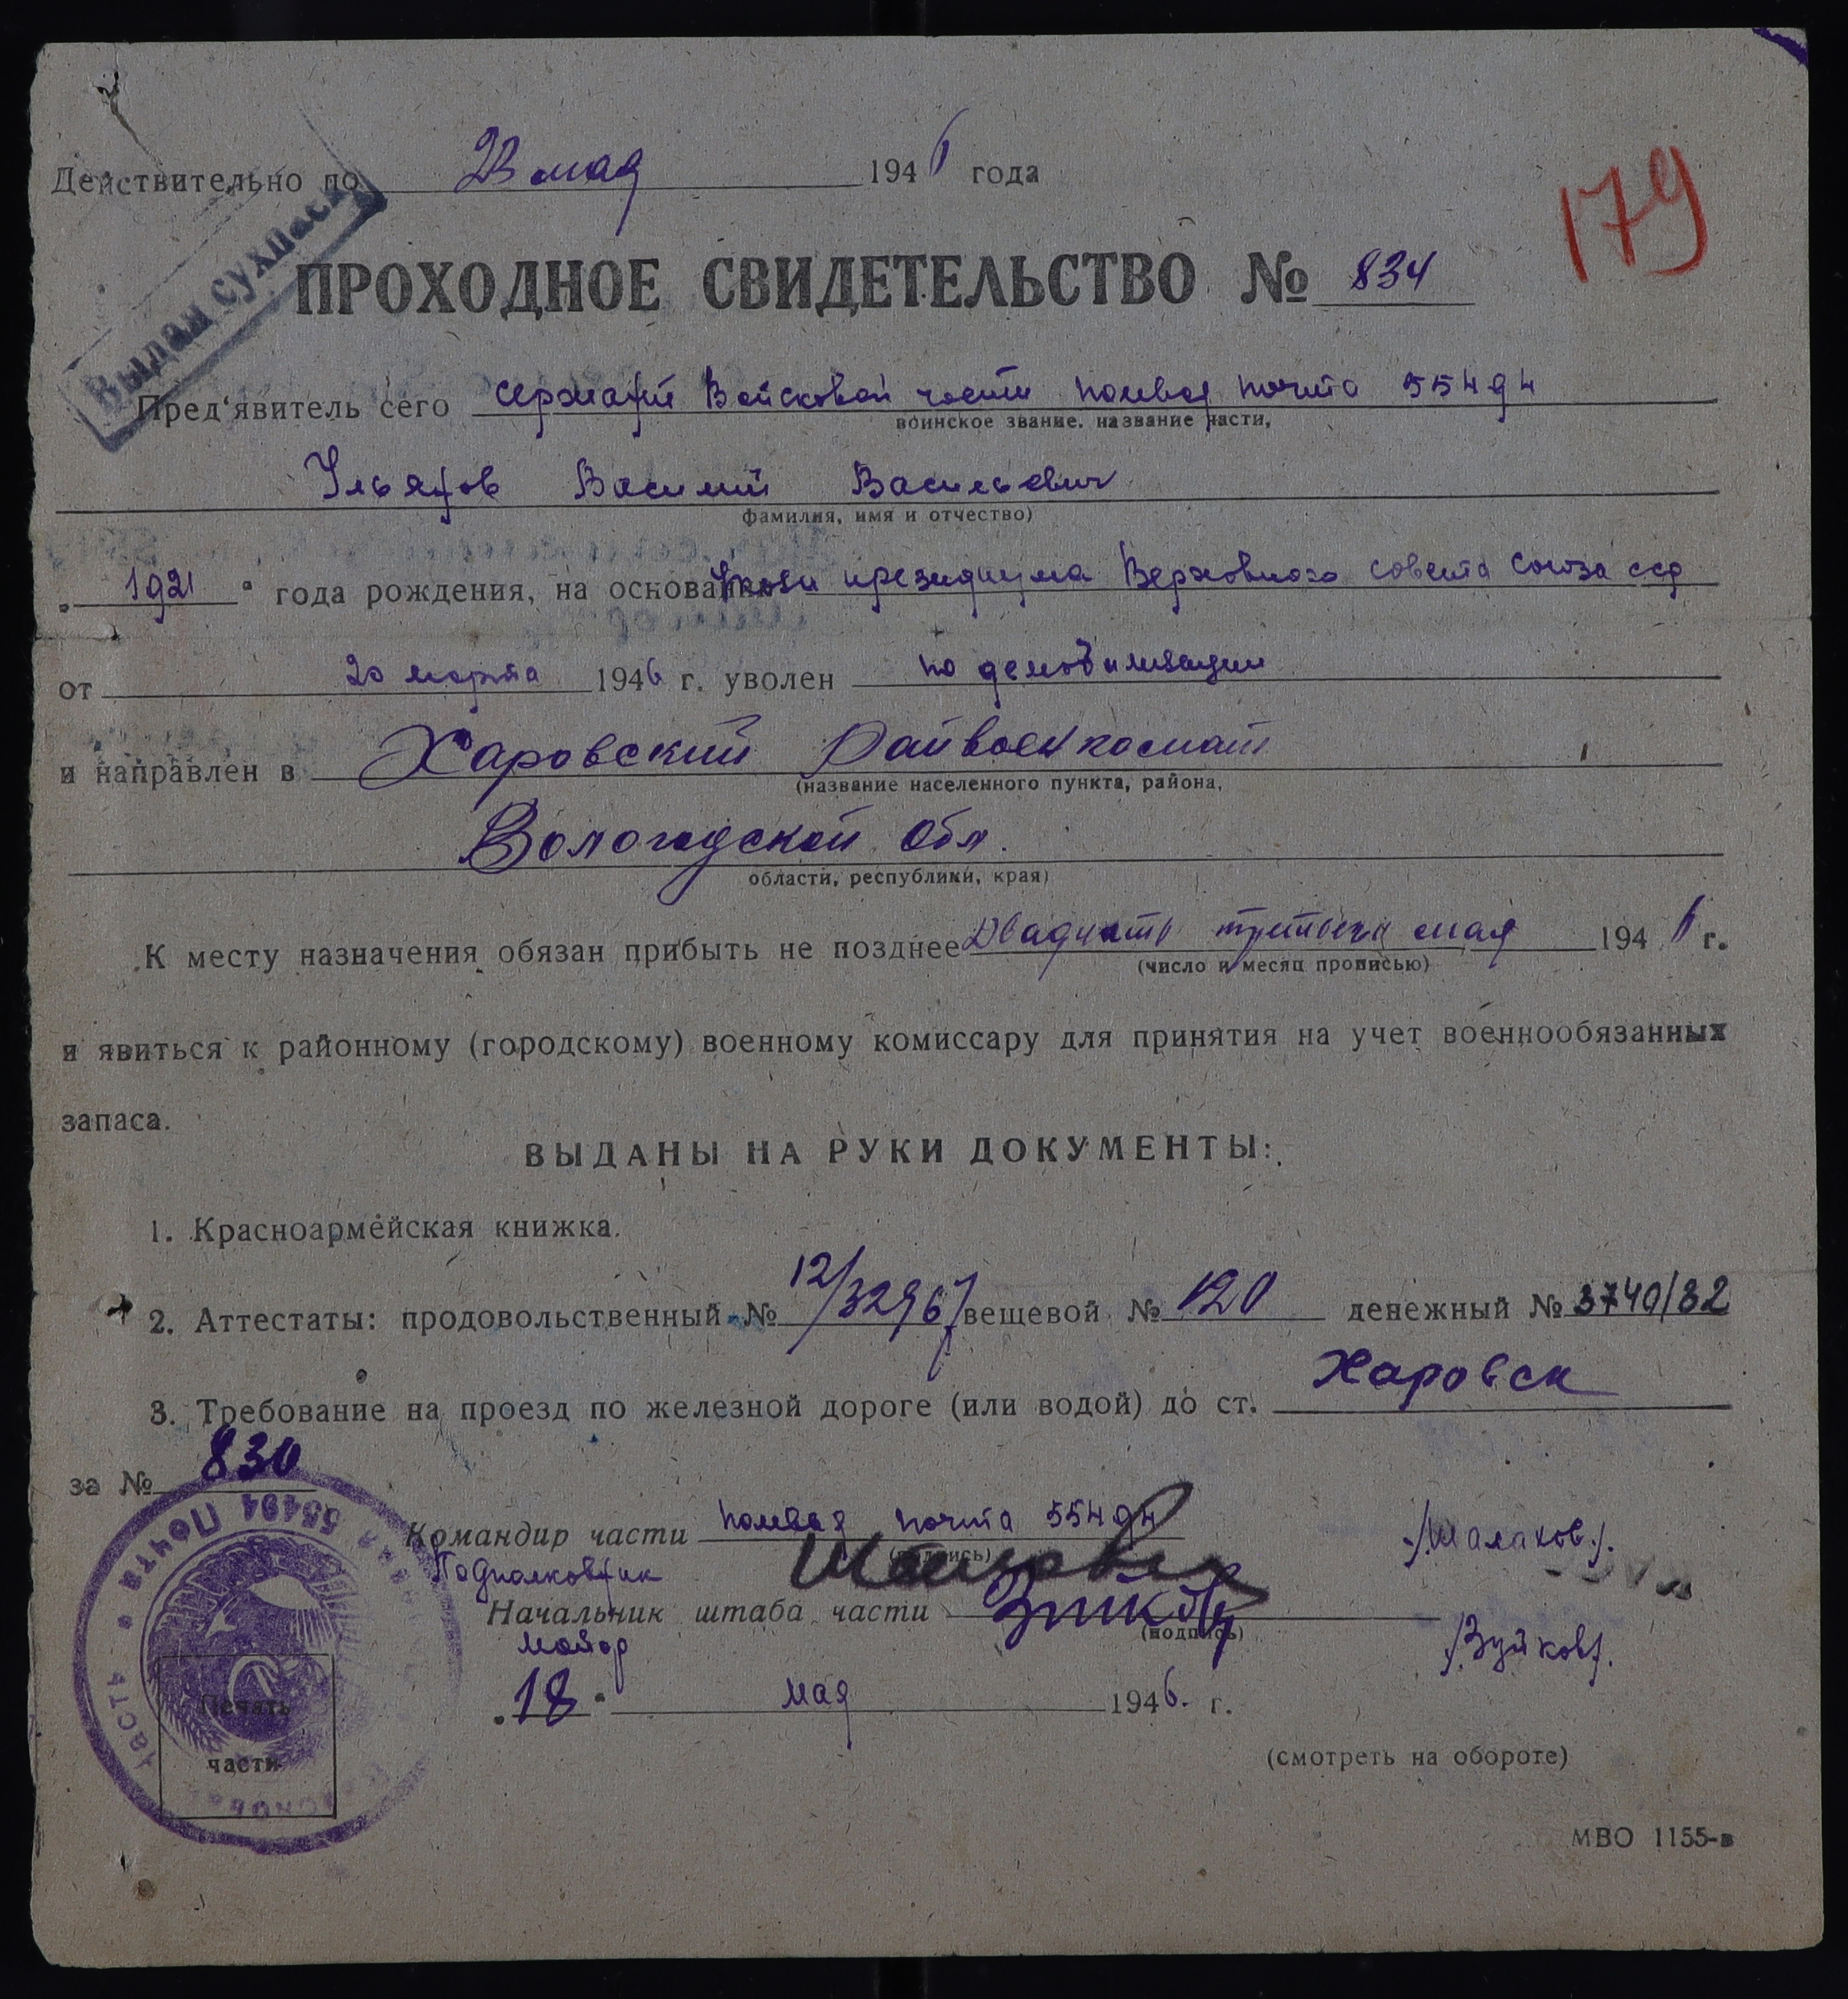 Действительно по 23 мая 1946 года
179
Выдан сухпаск
ПРОХОДНОЕ СВИДЕТЕЛЬСТВО № 834
Пред'явитель сего сержант Войсковой части полевая почта 55494
воинское звание, название части,
Ульянов Василий Васильевич
фамилия, имя и отчество)
„1921“ года рождения, на основании Указа президиума Верховного совета Союза ССР
от 20 марта 1946 г. уволен по демобилизации
и направлен в Харовский Райвоенкомат
(название населенного пункта, района,
Вологодской обл.
области, республики, края)
К месту назначения обязан прибыть не позднее Двадцать третьего мая 1946 г.
(число и месяц прописью)
и явиться к районному (городскому) военному комиссару для принятия на учет военнообязанных
запаса.
ВЫДАНЫ НА РУКИ ДОКУМЕНТЫ:
1. Красноармейская книжка.
2. Аттестаты: продовольственный № 12/32967 вещевой № 120 денежный № 3740/82
3. Требование на проезд по железной дороге (или водой) до ст. Харовск
за № 830
Командир части полевая почта 55494
(подпись)
Подполковник /Шалахов/.
Начальник штаба части
(подпись)
майор /Зуйков/.
„18“ мая 1946. г.
Печать
части
Почта 55494 часть
(смотреть на обороте)
МВО 1155-в